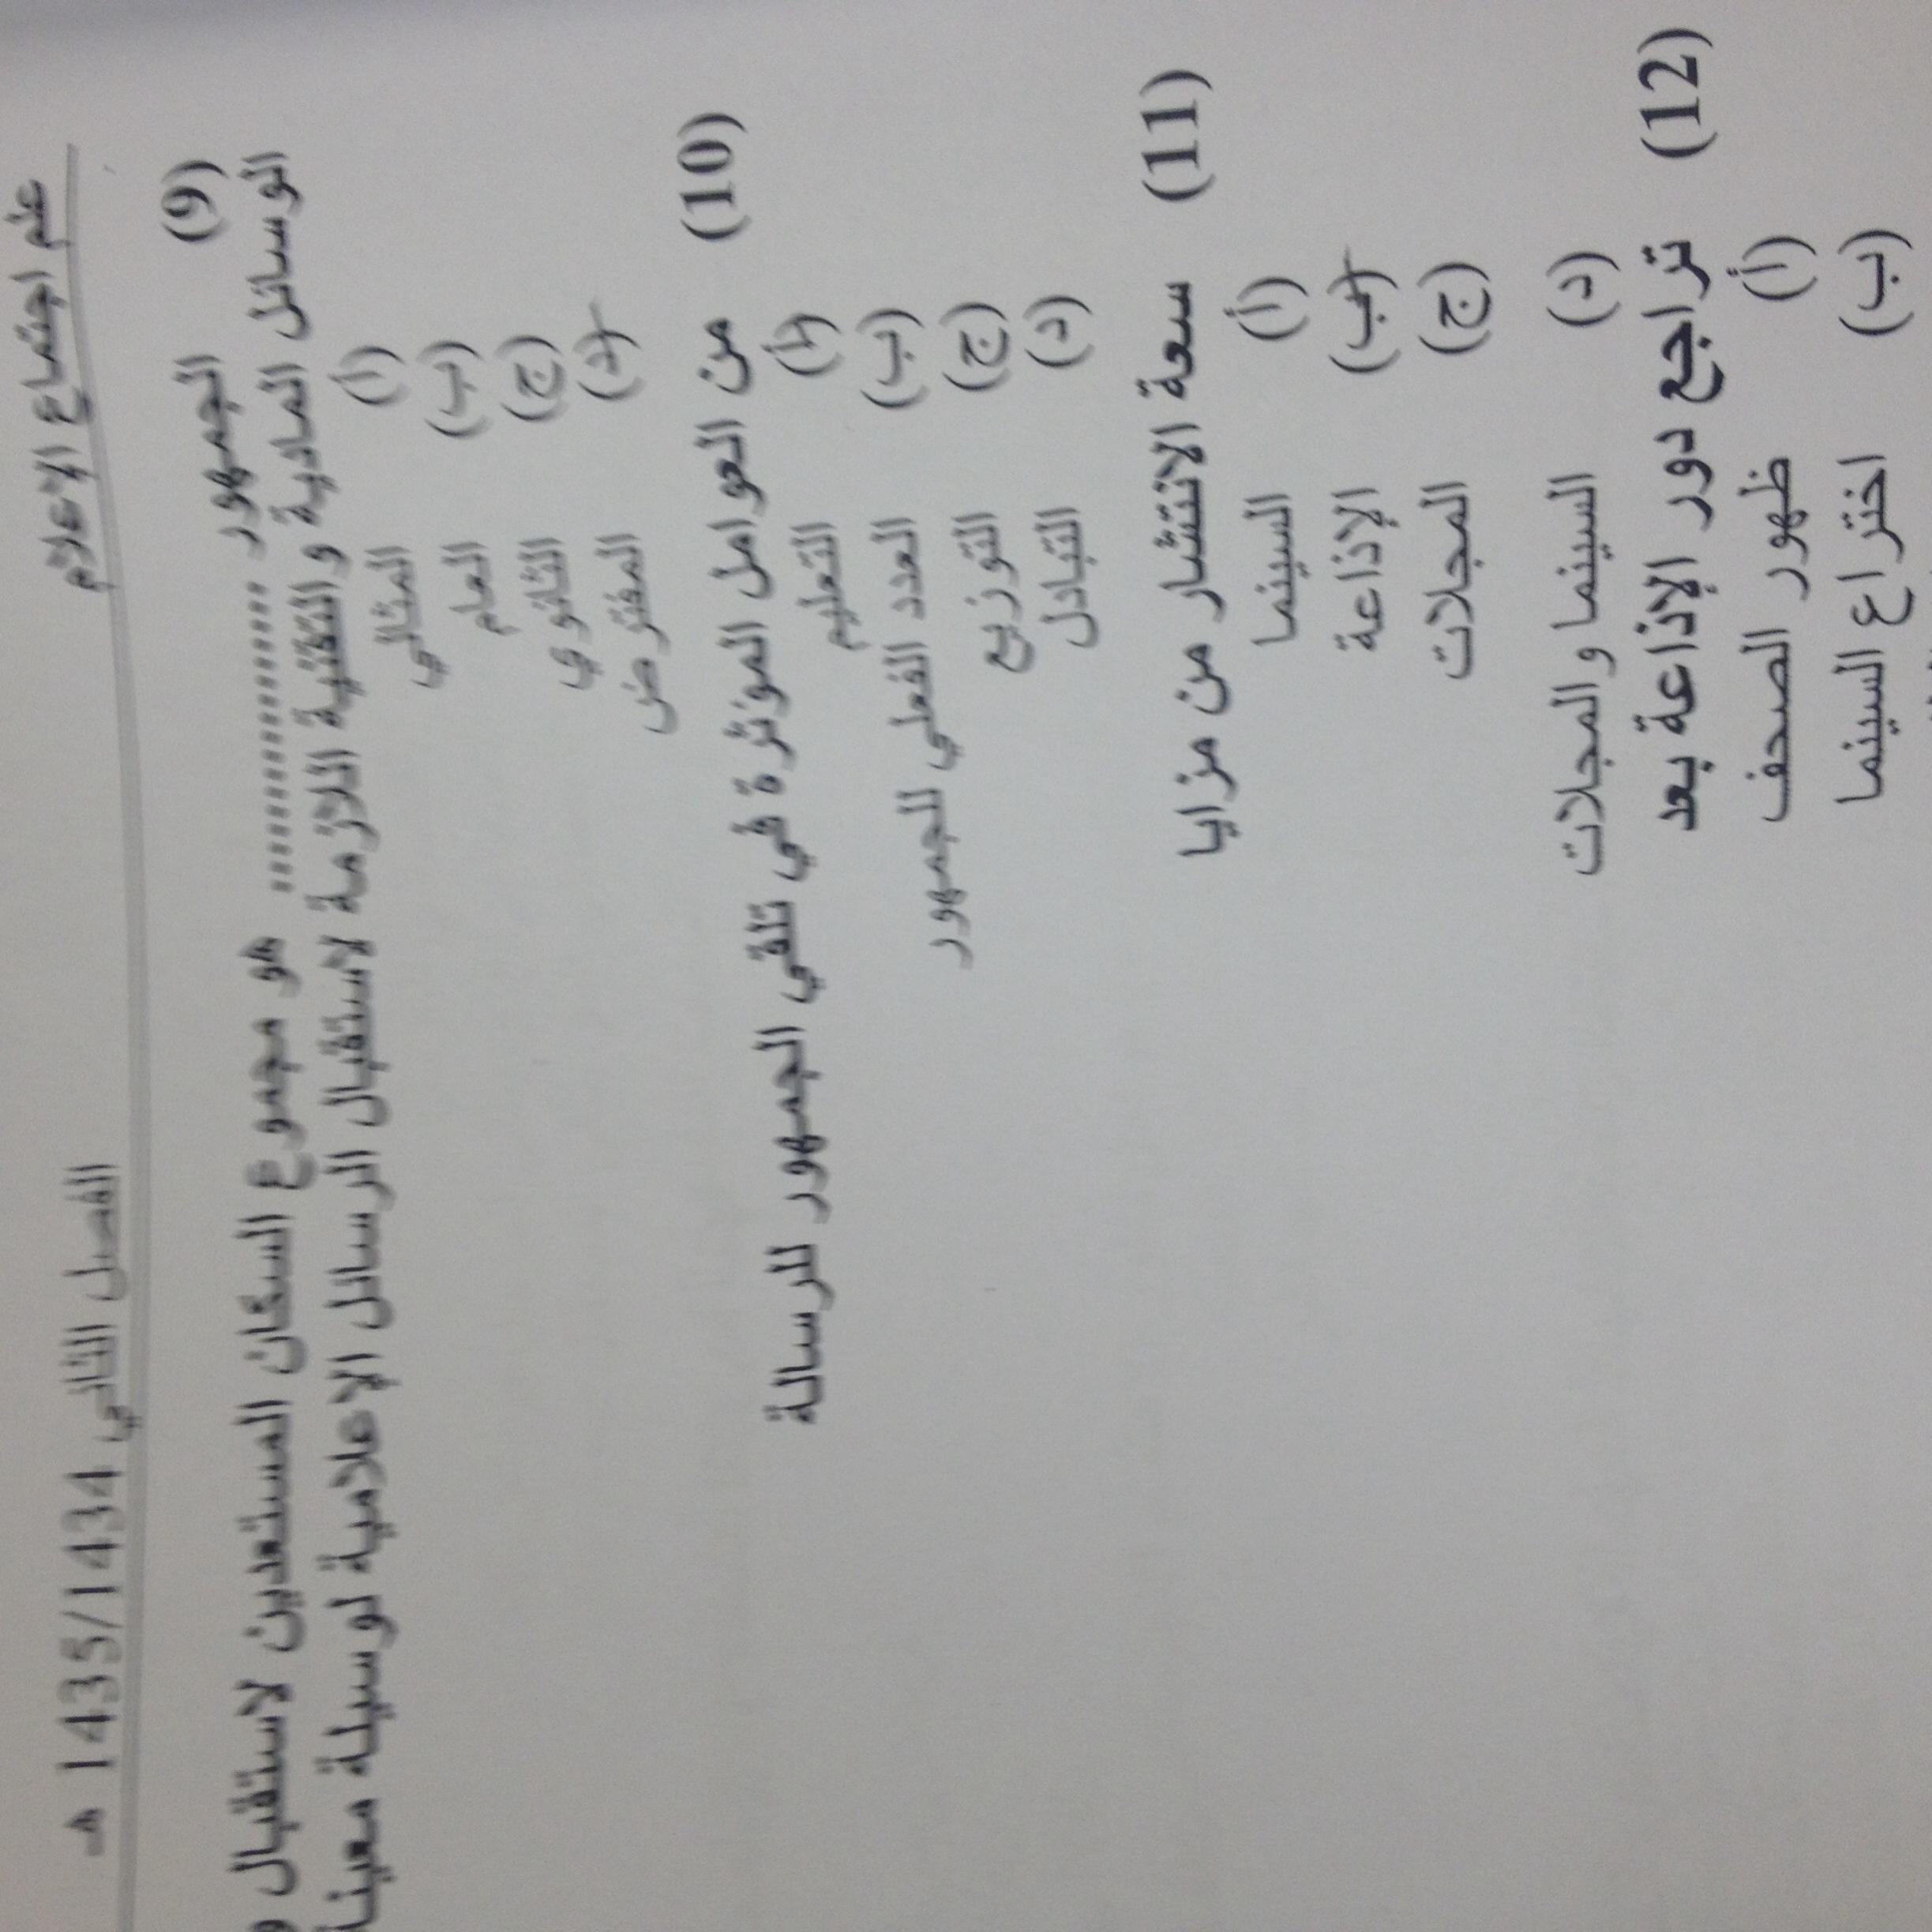 علم اجتماع الإعلام الفصل الثاني 1435/1434 هـ
(9) الجمهور ............ هو مجموع السكان المستعدين لاستقبال
الوسائل المادية والتقنية اللازمة لاستقبال الرسائل الإعلامية لوسيلة معينة
(أ) المثالي
(ب) العام
(ج) الثانوي
(د) المفترض
(10) من العوامل المؤثرة في تلقي الجمهور للرسالة
(أ) التعليم
(ب) العدد الفعلي للجمهور
(ج) التوزيع
(د) التبادل
(11) سعة الانتشار من مزايا
(أ) السينما
(ب) الإذاعة
(ج) المجلات
(د) السينما والمجلات
(12) تراجع دور الإذاعة بعد
(أ) ظهور الصحف
(ب) اختراع السينما